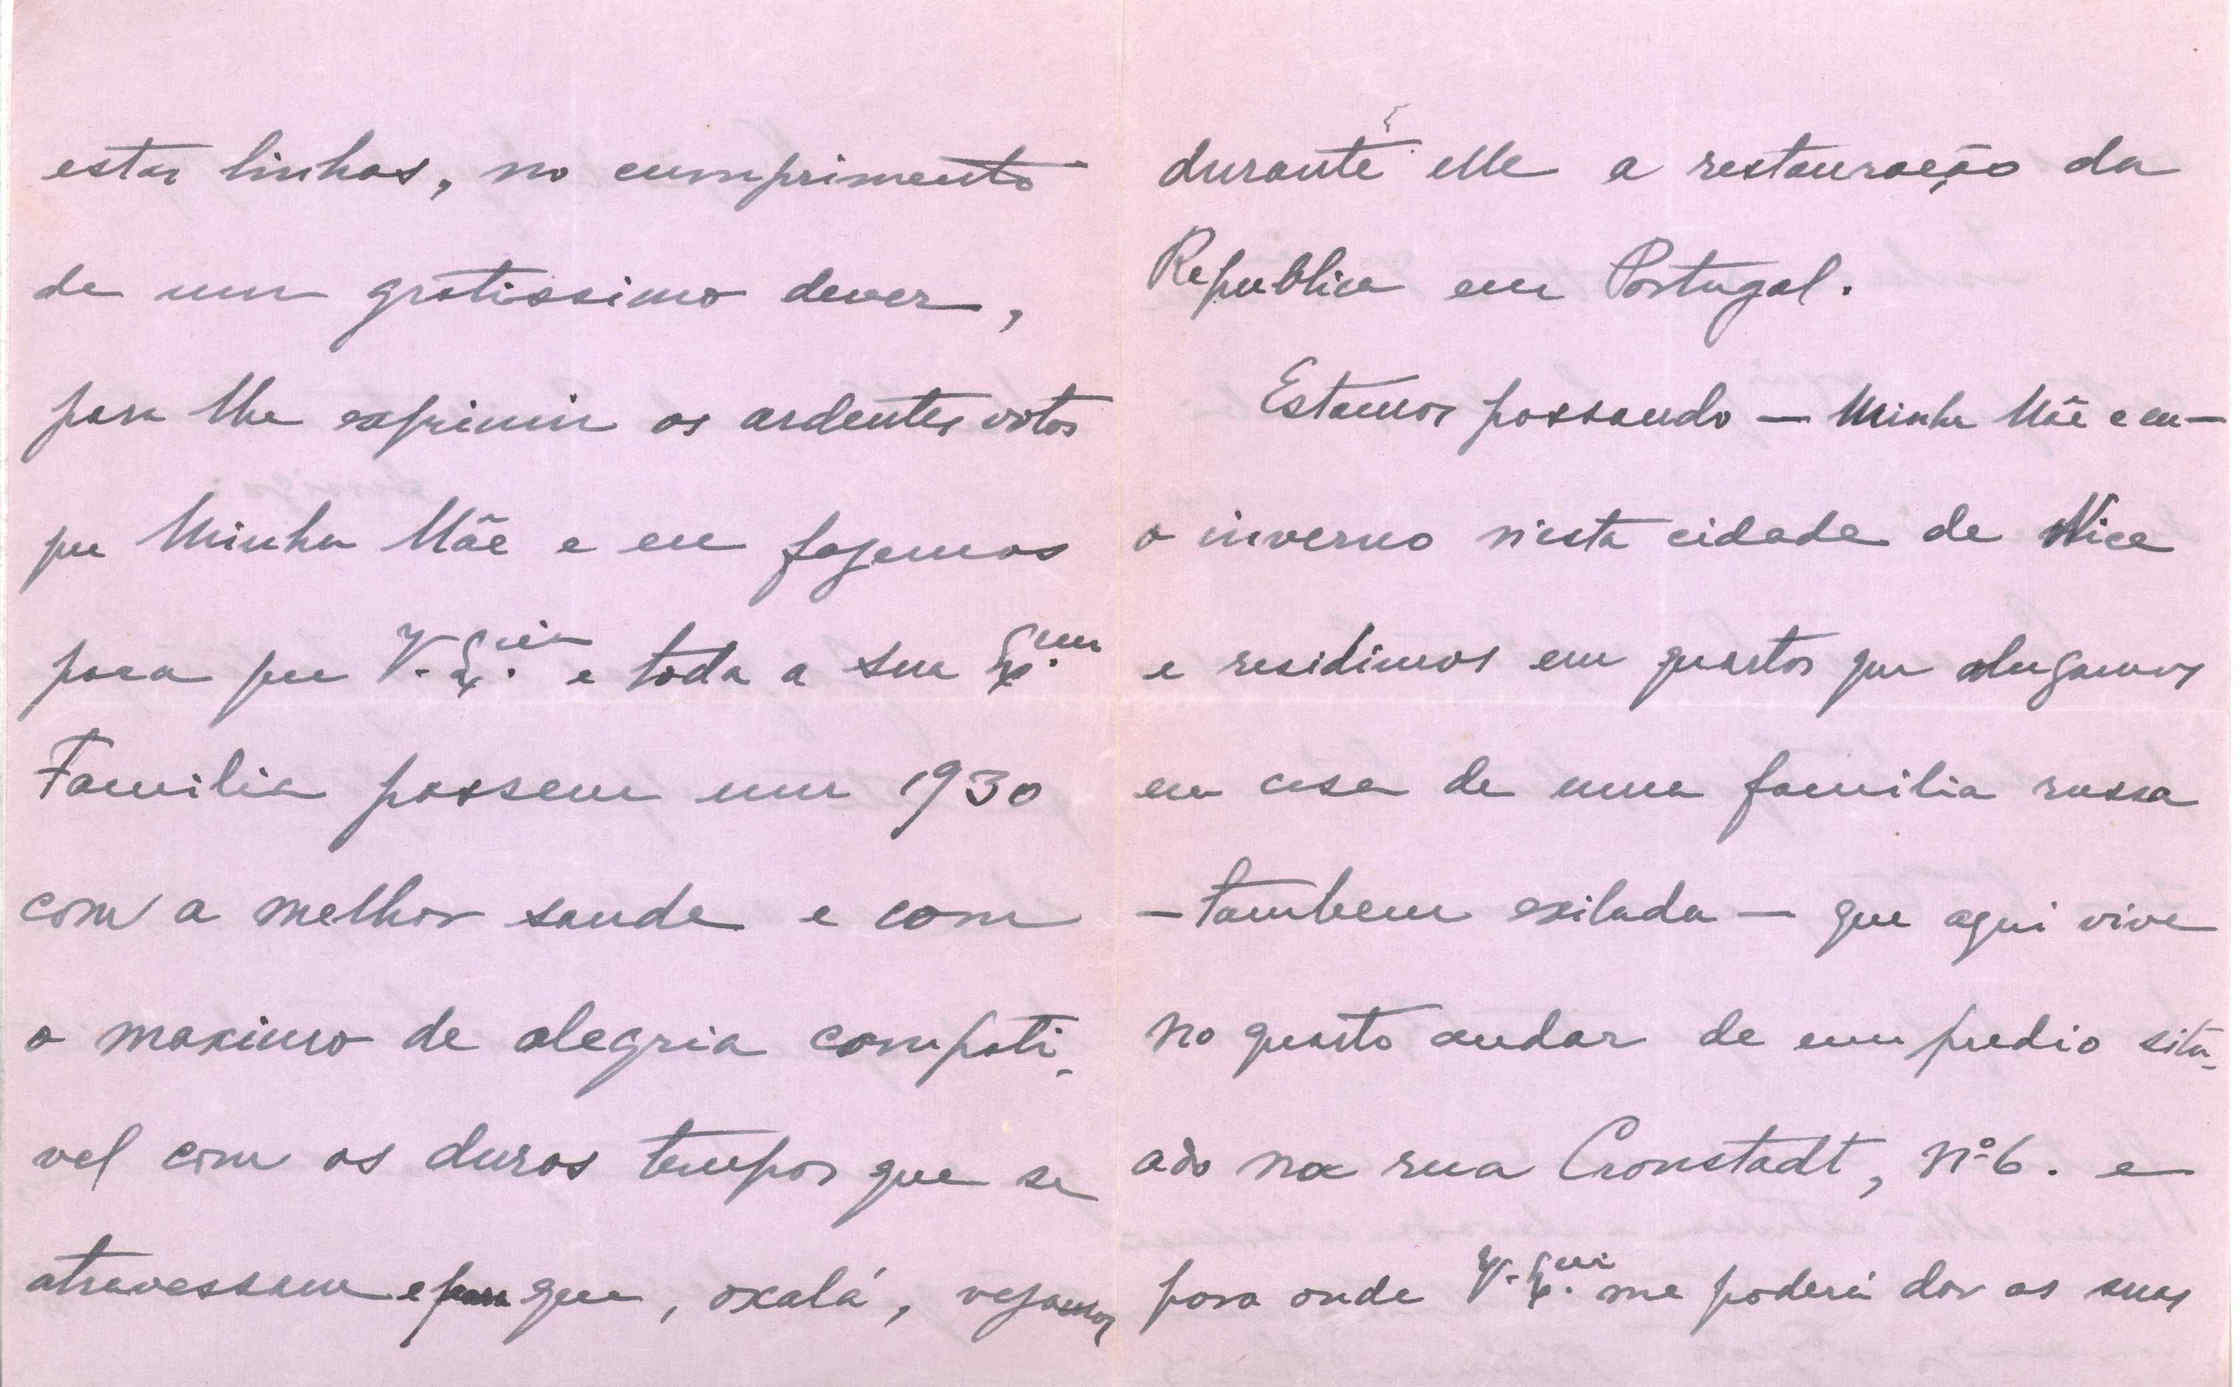 estas linhas, no cumprimento
de um gratissimo dever,
para lhe exprimir os ardentes votos
que Minha Mãe e eu fazemos
para que V. Ex.cia e toda a sua Ex.ma
Familia passem um 1930
com a melhor saude e com
o maximo de alegria compati-
vel com os duros tempos que se
atravessam e para que, oxalá, vejamos
durante elle a restauração da
Republica em Portugal.
Estamos passando — Minha Mãe e eu —
o inverno n'esta cidade de Nice
e residimos em quartos que alugamos
em casa de uma familia russa
— tambem exilada — que aqui vive
no quarto andar de um predio situ-
ado na rua Cronstadt, nº 6. e
para onde V. Ex.cia me poderá dar as suas